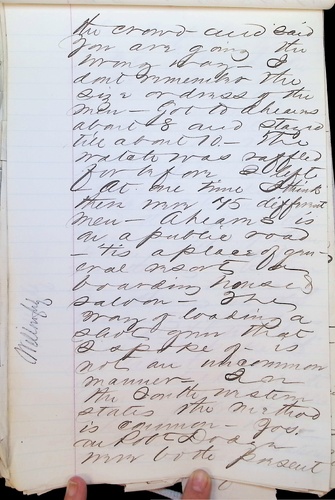 the crowd and said
You are going the
wrong way – I
dont remember the
size or dress of the
men – Got to Ahearns
about 8 and stayed
till about 10 – The
watch was raffled
for before I left
– At one time I think
there were 45 different
men – Ahearns is
on a public road
– tis a place of gen-
eral resort
boarding house &
saloon – The
way of loading a
shot gun that
I spoke of – is
not an uncommon
manner – In
the South western
states the method
is common –
and
were both present